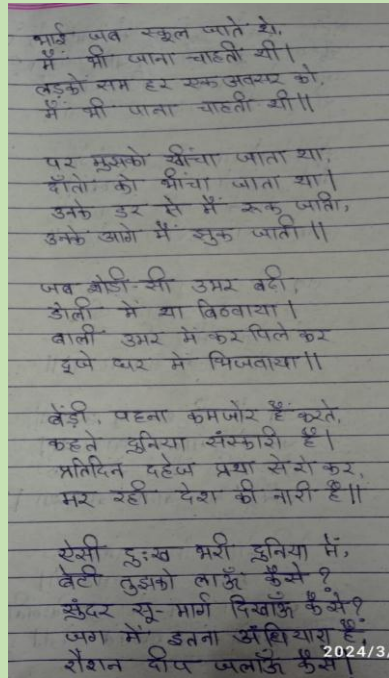 भाई जब स्कूल जाते थे,
मैं भी जाना चाहती थी।
लड़कों सम हर एक अवसर को,
मैं भी पाना चाहती थी॥
पर मुझको खींचा जाता था,
दाँतो को भींचा जाता था।
उनके डर से मैं रूक जाती,
उनके आगे मैं झुक जाती॥
जब थोड़ी-सी उमर बढ़ी,
डोली में था बिठवाया।
बाली उमर में कर पिले कर
दूजे घर में भिजवाया॥
बेड़ी, पहना कमजोर हैं करते,
कहते दुनिया संस्कारी है।
प्रतिदिन दहेज प्रथा से रो कर,
मर रही देश की नारी है॥
ऐसी दुःख भरी दुनिया में,
बेटी तुझको लाऊँ कैसे?
सुंदर सू-मार्ग दिखाऊँ कैसे?
जग में इतना अँधियारा है,
रौशन दीप जलाऊँ कैसे।
2024/3/